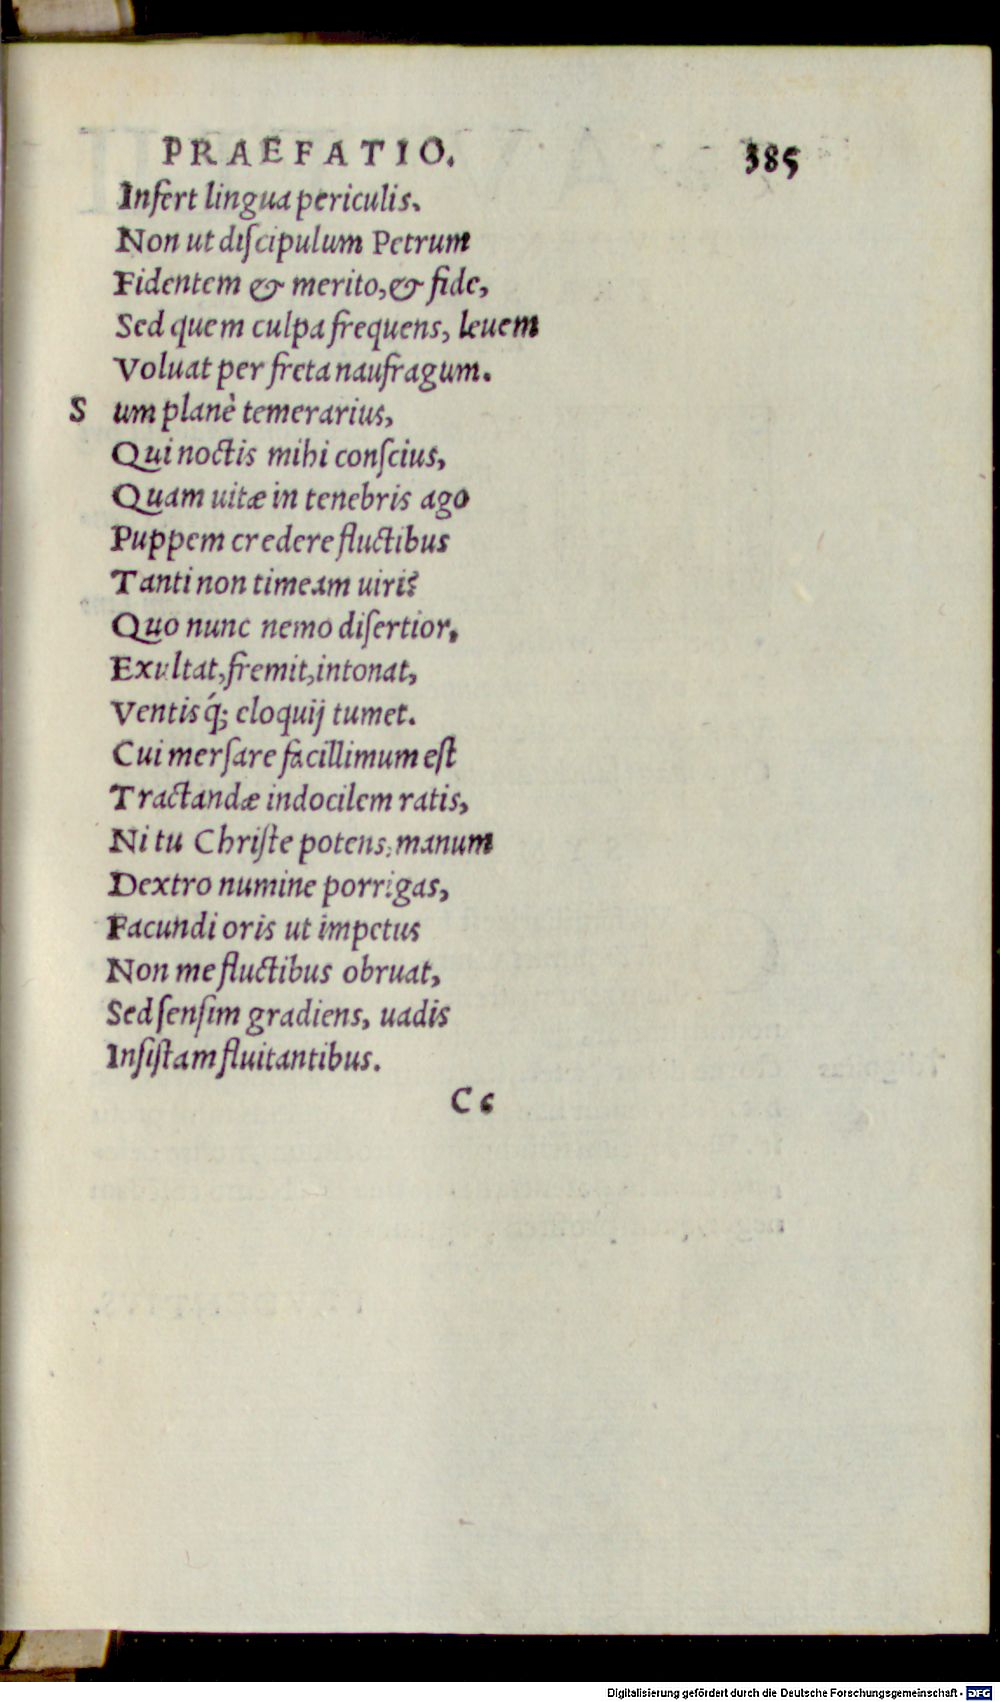 PRAEFATIO. 385
Infert lingua periculis.
Non ut diſcipulum Petrum
Fidentem & merito, & fide,
Sed quem culpa frequens, leuem
Voluat per freta naufragum.
S um planè temerarius,
Qui noctis mihi conſcius,
Quam uitæ in tenebris ago
Puppem credere fluctibus
Tanti non timeam uiri?
Quo nunc nemo diſertior,
Exultat, fremit, intonat,
Ventisq́; eloquij tumet.
Cui merſare facillimum eſt
Tractandæ indocilem ratis,
Ni tu Chriſte potens, manum
Dextro numine porrigas,
Facundi oris ut impetus
Non me fluctibus obruat,
Sed ſenſim gradiens, uadis
Inſiſtam fluitantibus.
Cc
Digitalisierung gefördert durch die Deutsche Forschungsgemeinschaft - DFG